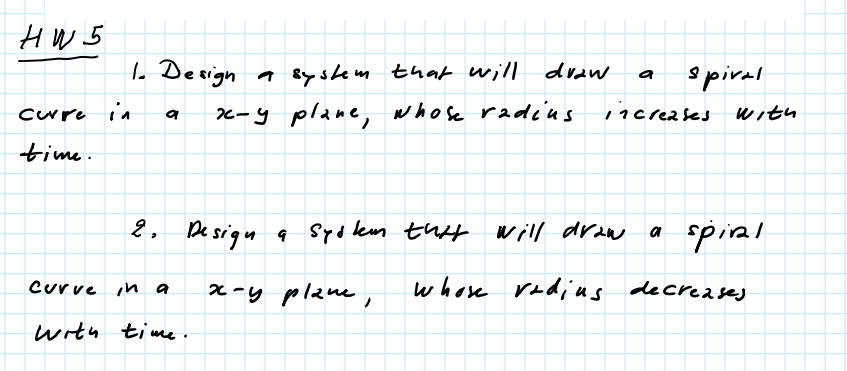 HW5
1. Design a system that will draw a spiral
curve in a x-y plane, whose radius increases with
time.
2. Design a system that will draw a spiral
curve in a x-y plane, whose radius decreases
with time.